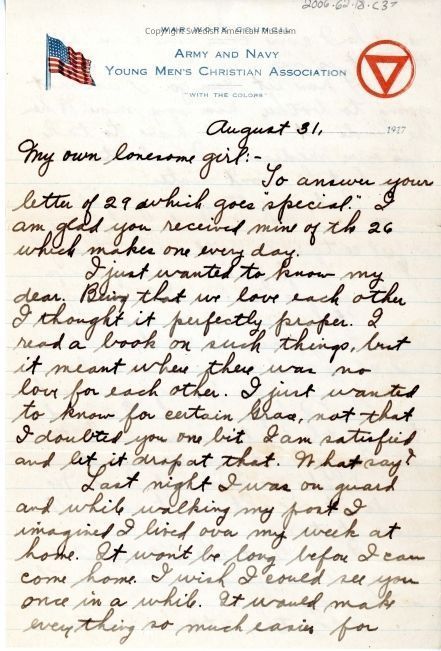 2006-62-18-c37
WAR WORK COUNCIL
Copyright Swedish American Museum
ARMY AND NAVY
YOUNG MEN'S CHRISTIAN ASSOCIATION
"WITH THE COLORS"
August 31, 1917
My own lonesome girl:-
To answer your
letter of 29 which goes special." I
am glad you received mine of th 26
which makes one every day.
I just wanted to know my
dear. Being that we love each other
I thought it perfectly proper. I
read a book on such things, but
it meant where there was no
love for each other. I just wanted
to know for certain Grace, not that
I doubted you one bit I am satisfied
and let it drop at that. What say?
Last night I was on guard
and while walking my post I
imagined I lived over my week at
home. It won't be long before I can
come home. I wish I could see you
once in a while. It would make
everything so much easier for